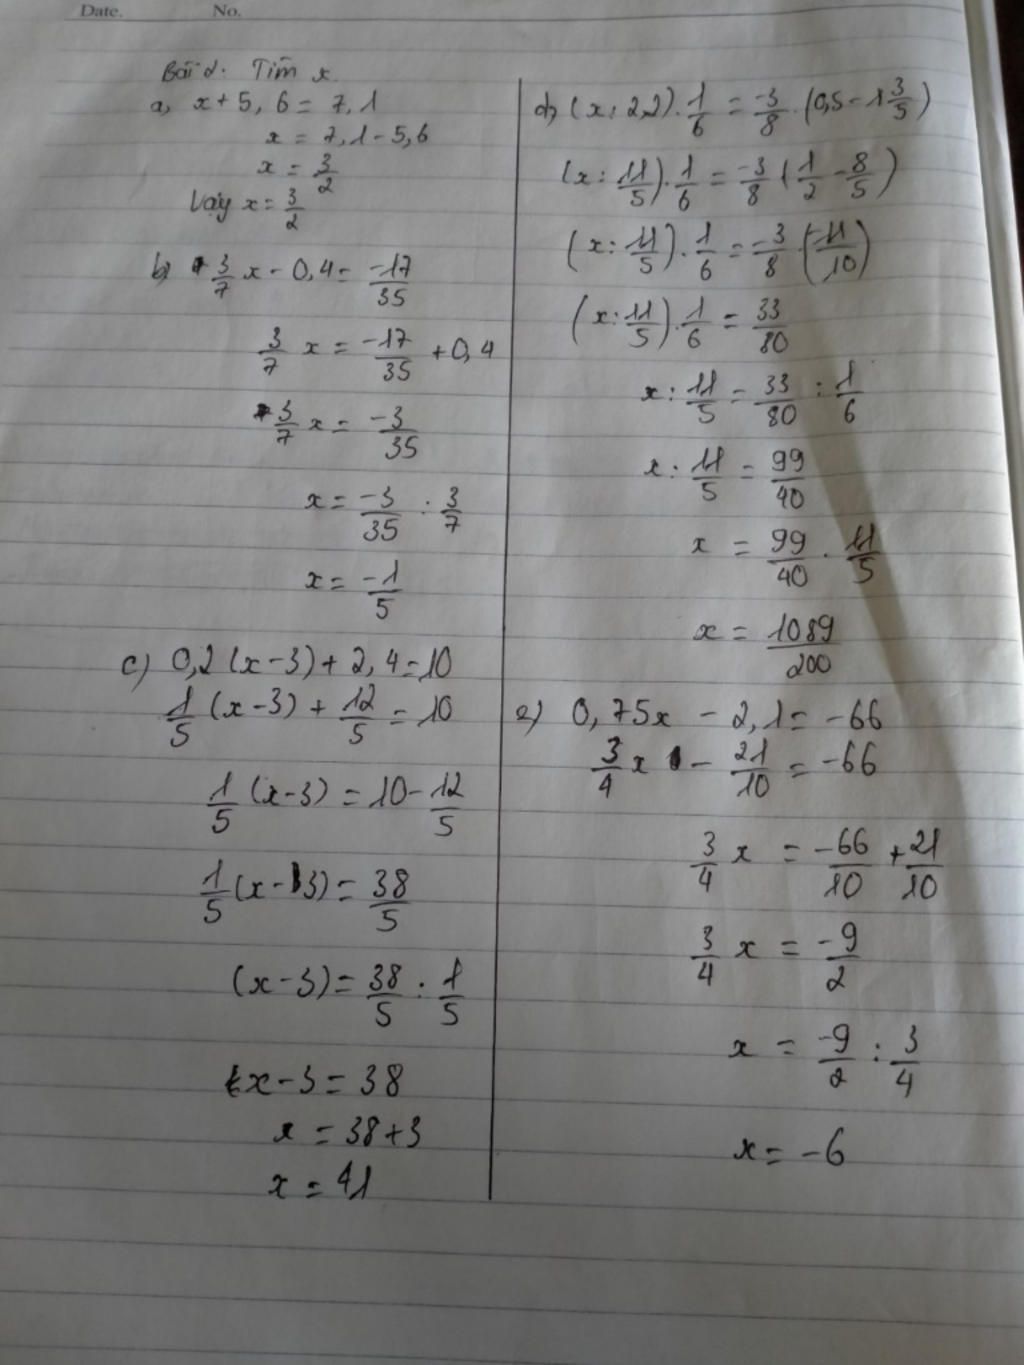 Date. No.
Bài 2: Tìm x.
a, x + 5,6 = 7,1
x = 7,1 - 5,6
x = 3/2
Vậy x = 3/2
b) 3/7 x - 0,4 = -17/35
3/7 x = -17/35 + 0,4
3/7 x = -3/35
x = -3/35 : 3/7
x = -1/5
c) 0,2 (x-3) + 2,4 = 10
1/5 (x-3) + 12/5 = 10
1/5 (x-3) = 10 - 12/5
1/5 (x-3) = 38/5
(x-3) = 38/5 : 1/5
x - 3 = 38
x = 38 + 3
x = 41
d, (x : 2,2) . 1/6 = -3/8 . (0,5 - 1 3/5)
(x : 11/5) . 1/6 = -3/8 (1/2 - 8/5)
(x : 11/5) . 1/6 = -3/8 . (-11/10)
(x : 11/5) . 1/6 = 33/80
x : 11/5 = 33/80 : 1/6
x : 11/5 = 99/40
x = 99/40 . 11/5
x = 1089/200
e) 0,75x - 2,1 = -66
3/4 x - 21/10 = -66
3/4 x = -66/10 + 21/10
3/4 x = -9/2
x = -9/2 : 3/4
x = -6